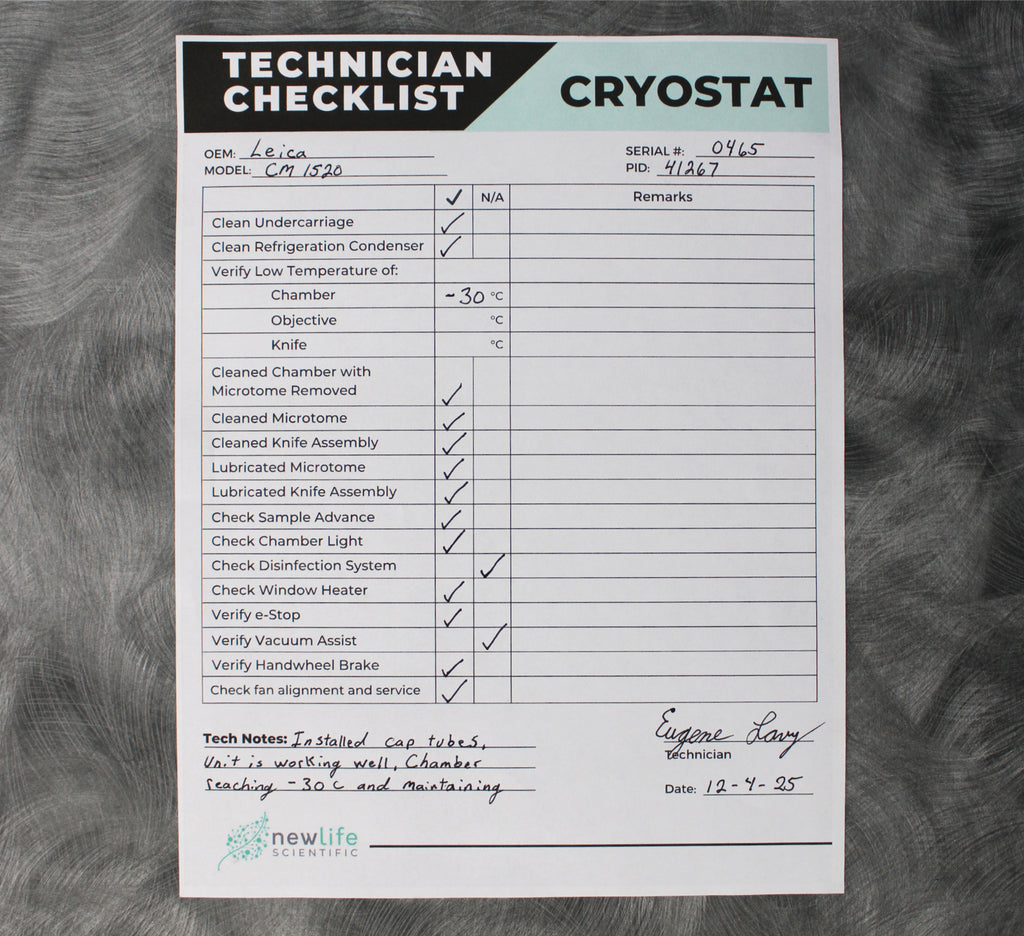 TECHNICIAN
CHECKLIST
CRYOSTAT
OEM: Leica
SERIAL #: 0465
MODEL: CM 1520
PID: 41267
✓ N/A Remarks
Clean Undercarriage ✓
Clean Refrigeration Condenser ✓
Verify Low Temperature of:
Chamber -30 °C
Objective °C
Knife °C
Cleaned Chamber with
Microtome Removed ✓
Cleaned Microtome ✓
Cleaned Knife Assembly ✓
Lubricated Microtome ✓
Lubricated Knife Assembly ✓
Check Sample Advance ✓
Check Chamber Light ✓
Check Disinfection System ✓
Check Window Heater ✓
Verify e-Stop ✓
Verify Vacuum Assist ✓
Verify Handwheel Brake ✓
Check fan alignment and service ✓
Tech Notes: Installed cap tubes,
Unit is working well, Chamber
reaching -30 C and maintaining
Eugene Lavy
Technician
Date: 12-4-25
newlife
SCIENTIFIC